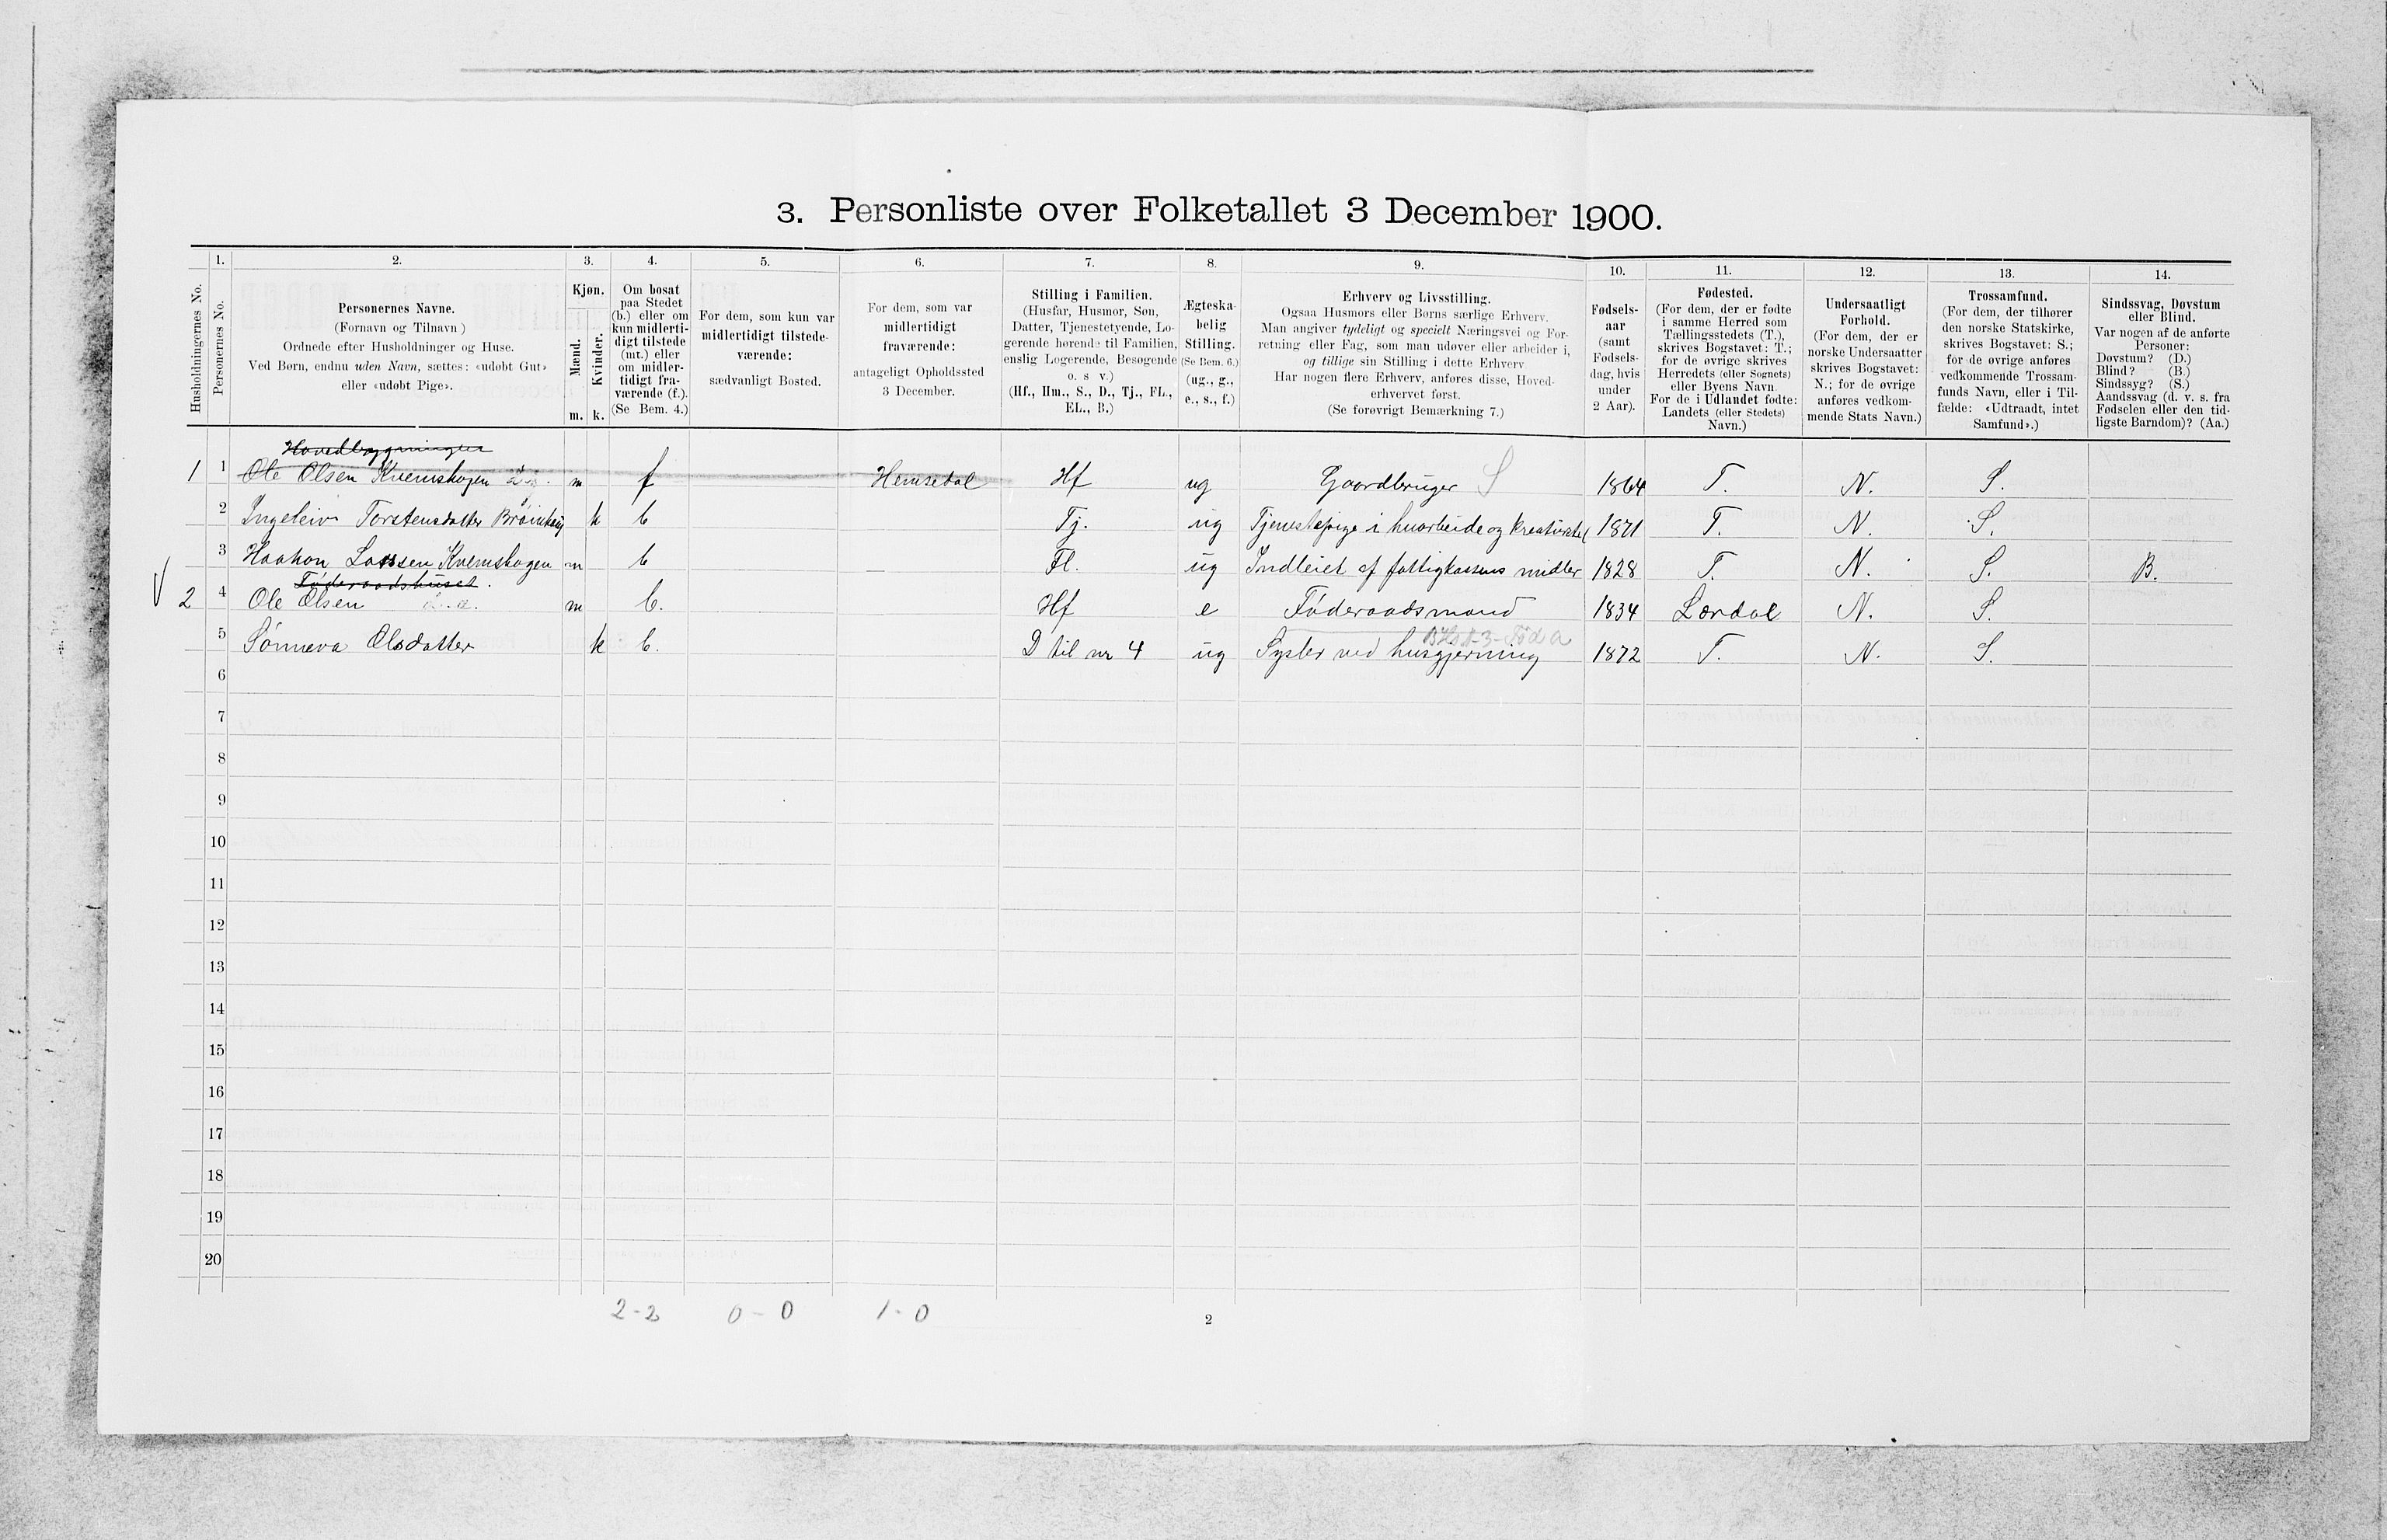 3. Personliste over Folketallet 3 December 1900.
1. 2. 3. 4. 5. 6. 7. 8. 9. 10. 11. 12. 13. 14.
Husholdningernes No.
Personernes No.
Personernes Navne.
(Fornavn og Tilnavn)
Ordnede efter Husholdninger og Huse.
Ved Børn, endnu uden Navn, sættes: «udøbt Gut»
eller «udøbt Pige».
Kjøn.
Mænd.
Kvinder.
m. k.
Om bosat
paa Stedet
(b.) eller om
kun midlerti-
digt tilstede
(mt.) eller
om midler-
tidigt fra-
værende (f.).
(Se Bem. 4.)
For dem, som kun var
midlertidigt tilstede-
værende:
sædvanligt Bosted.
For dem, som var
midlertidigt
fraværende:
antageligt Opholdssted
3 December.
Stilling i Familien.
(Husfar, Husmor, Søn,
Datter, Tjenestetyende, Lo-
gerende hørende til Familien,
enslig Logerende, Besøgende
o. s v.)
(Hf., Hm., S., D., Tj., FL.,
EL., B.)
Ægteska-
belig
Stilling.
(Se Bem. 6.)
(ug., g.,
e., s., f.)
Erhverv og Livsstilling.
Ogsaa Husmors eller Børns særlige Erhverv.
Man angiver tydeligt og specielt Næringsvei og For-
retning eller Fag, som man udøver eller arbeider i,
og tillige sin Stilling i dette Erhverv
Har nogen flere Erhverv, anføres disse, Hoved-
erhvervet først.
(Se forøvrigt Bemærkning 7.)
Fødsels-
aar
(samt
Fødsels-
dag, hvis
under
2 Aar).
Fødested.
(For dem, der er fødte
i samme Herred som
Tællingsstedets (T.),
skrives Bogstavet: T.;
for de øvrige skrives
Herredets (eller Sognets)
eller Byens Navn
For de i Udlandet fødte:
Landets (eller Stedets)
Navn.)
Undersaatligt
Forhold.
(For dem, der er
norske Undersaatter
skrives Bogstavet:
N.; for de øvrige
anføres vedkom-
mende Stats Navn.)
Trossamfund.
(For dem, der tilhører
den norske Statskirke,
skrives Bogstavet: S.;
for de øvrige anføres
vedkommende Trossam-
funds Navn, eller i Til-
fælde: «Udtraadt, intet
Samfund».)
Sindssvag, Døvstum
eller Blind.
Var nogen af de anførte
Personer:
Døvstum? (D.)
Blind? (B.)
Sindssyg? (S.)
Aandssvag (d. v. s. fra
Fødselen eller den tid-
ligste Barndom)? (Aa.)
Hovedbygningen
1 1 Ole Olsen Kvemshagen m f Hemsedal Hf ug Gaardbruger S 1864 T. N. S.
2 Ingeleiv Torstensdatter k b Tj. ug Tjenestepige i husarbeide og kreaturstel 1871 T. N. S.
3 Haakon Larssen Kvemshagen m b Fl. ug Indleiet af fattigkassens midler 1828 T. N. S. B.
Føderaadshuset.
2 4 Ole Olsen m b. Hf e Føderaadsmand 1834 Lærdal N. S.
5 Sønneva Olsdatter k b. D til nr 4 ug Sysler ved husgjerning 1872 T. N. S.
6
7
8
9
10
11
12
13
14
15
16
17
18
19
20
2-2 0-0 1-0
2